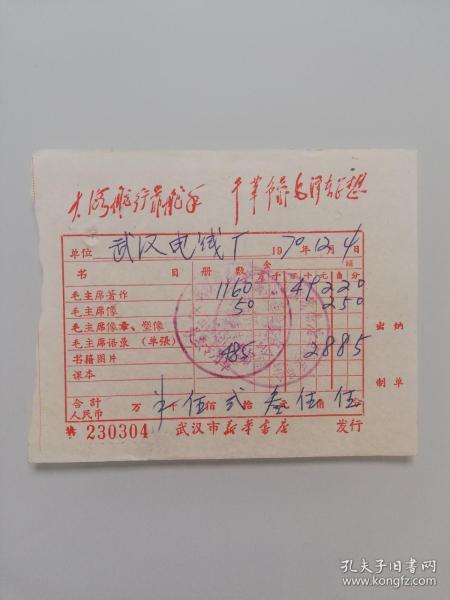 大海航行靠舵手 干革命靠毛泽东思想
单位 武汉电线厂 1970年12月4日
书 目 册 数 金 额
千 百 十 元 角 分
毛主席著作 1160 49220
毛主席像 50 250
毛主席像章、塑像
毛主席语录(单張) 485 2885
书籍图片
课本
出 纳
制 单
合計 人民币 万 千 伍 佰 贰 拾 叁 元 伍 角 伍 分
230304 武汉市新华書店 发行
孔夫子旧书网
www.kongfz.com